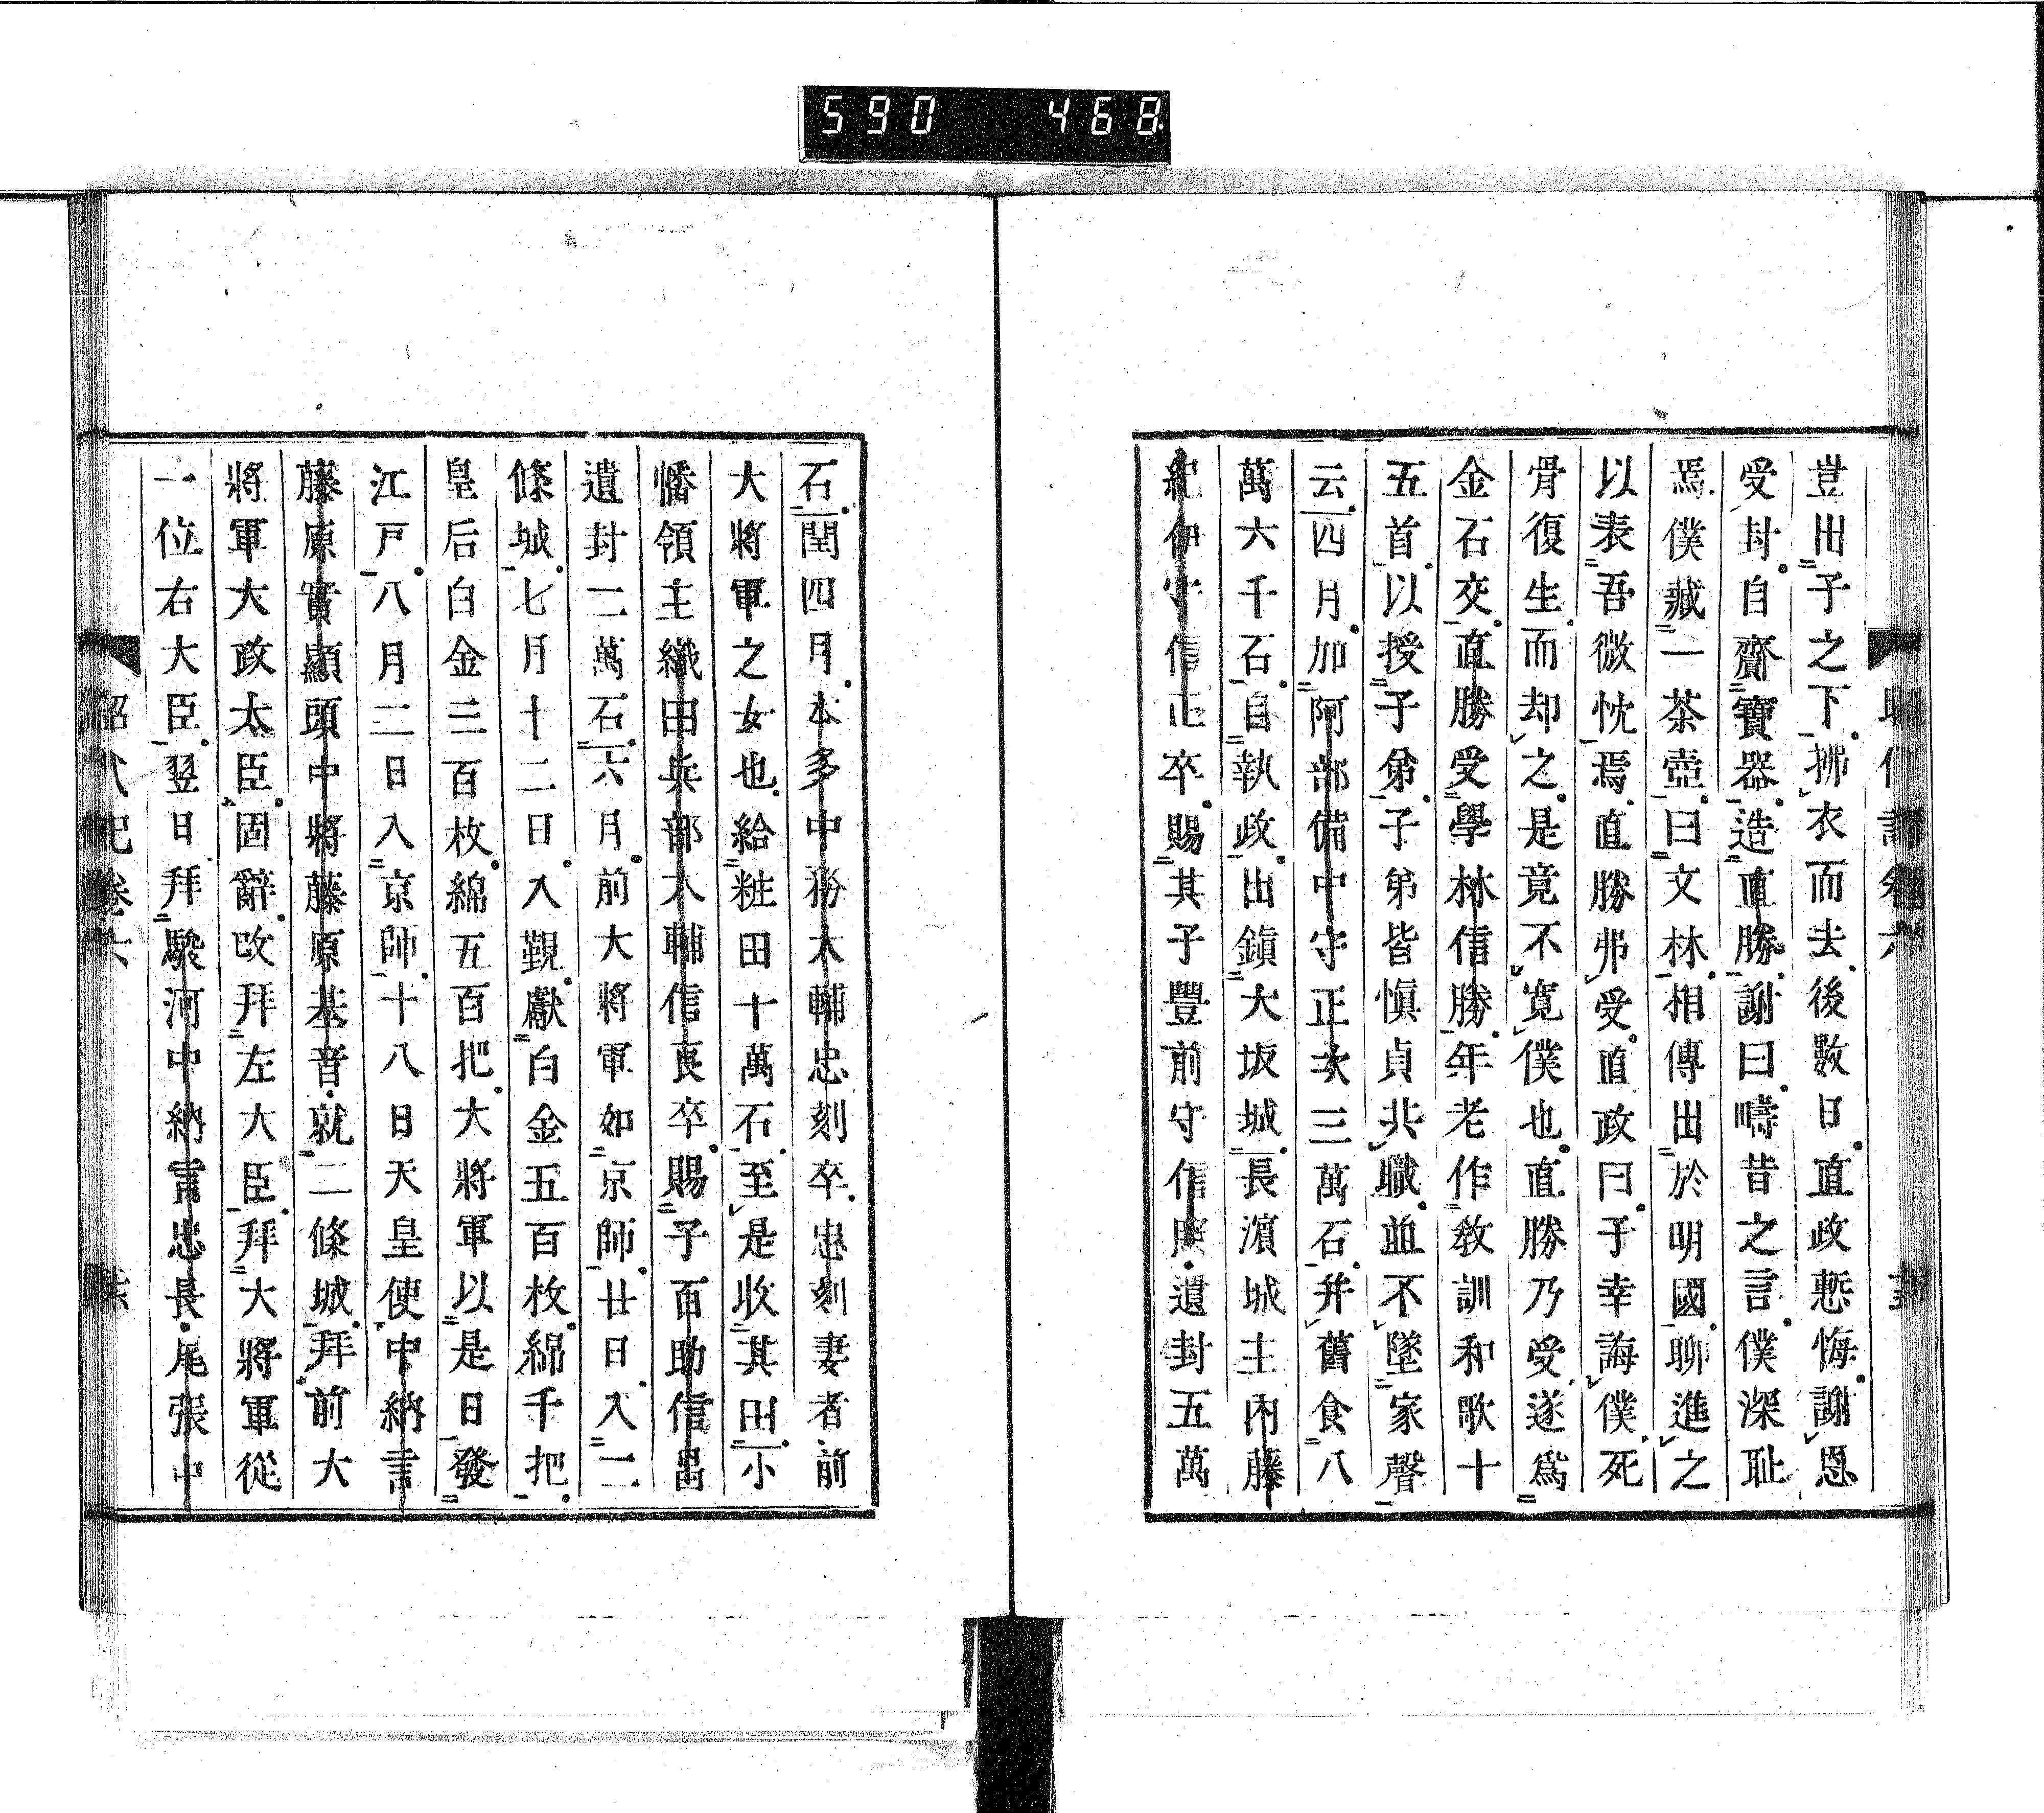 590 468
豈出子之下拂衣而去後數日直政慙悔謝恩
受封自齎寶器造直勝謝曰疇昔之言僕深耻
焉僕藏一茶壺曰文林相傳出於明國聊進之
以表吾微忱焉直勝弗受直政曰子幸誨僕死
骨復生而却之是竟不寛僕也直勝乃受遂爲
金石交直勝受學林信勝年老作敎訓和歌十
五首以授子弟子弟皆愼貞共職並不墜家聲
云四月加阿部備中守正次三萬石并舊食八
萬六千石自執政出鎭大坂城長濵城主內藤
紀伊守信正卒賜其子豐前守信照遺封五萬
石閏四月本多中務大輔忠刻卒忠刻妻者前
大將軍之女也給粧田十萬石至是收其田小
幡領主織田兵部大輔信良卒賜子百助信昌
遺封二萬石六月前大將軍如京師廿日入二
條城七月十二日入覲獻白金五百枚綿千把
皇后白金三百枚綿五百把大將軍以是日發
江戸八月二日入京師十八日天皇使中納言
藤原實顯頭中將藤原基音就二條城拜前大
將軍大政太臣固辭改拜左大臣拜大將軍從
一位右大臣翌日拜駿河中納言忠長尾張中
昭代記卷六